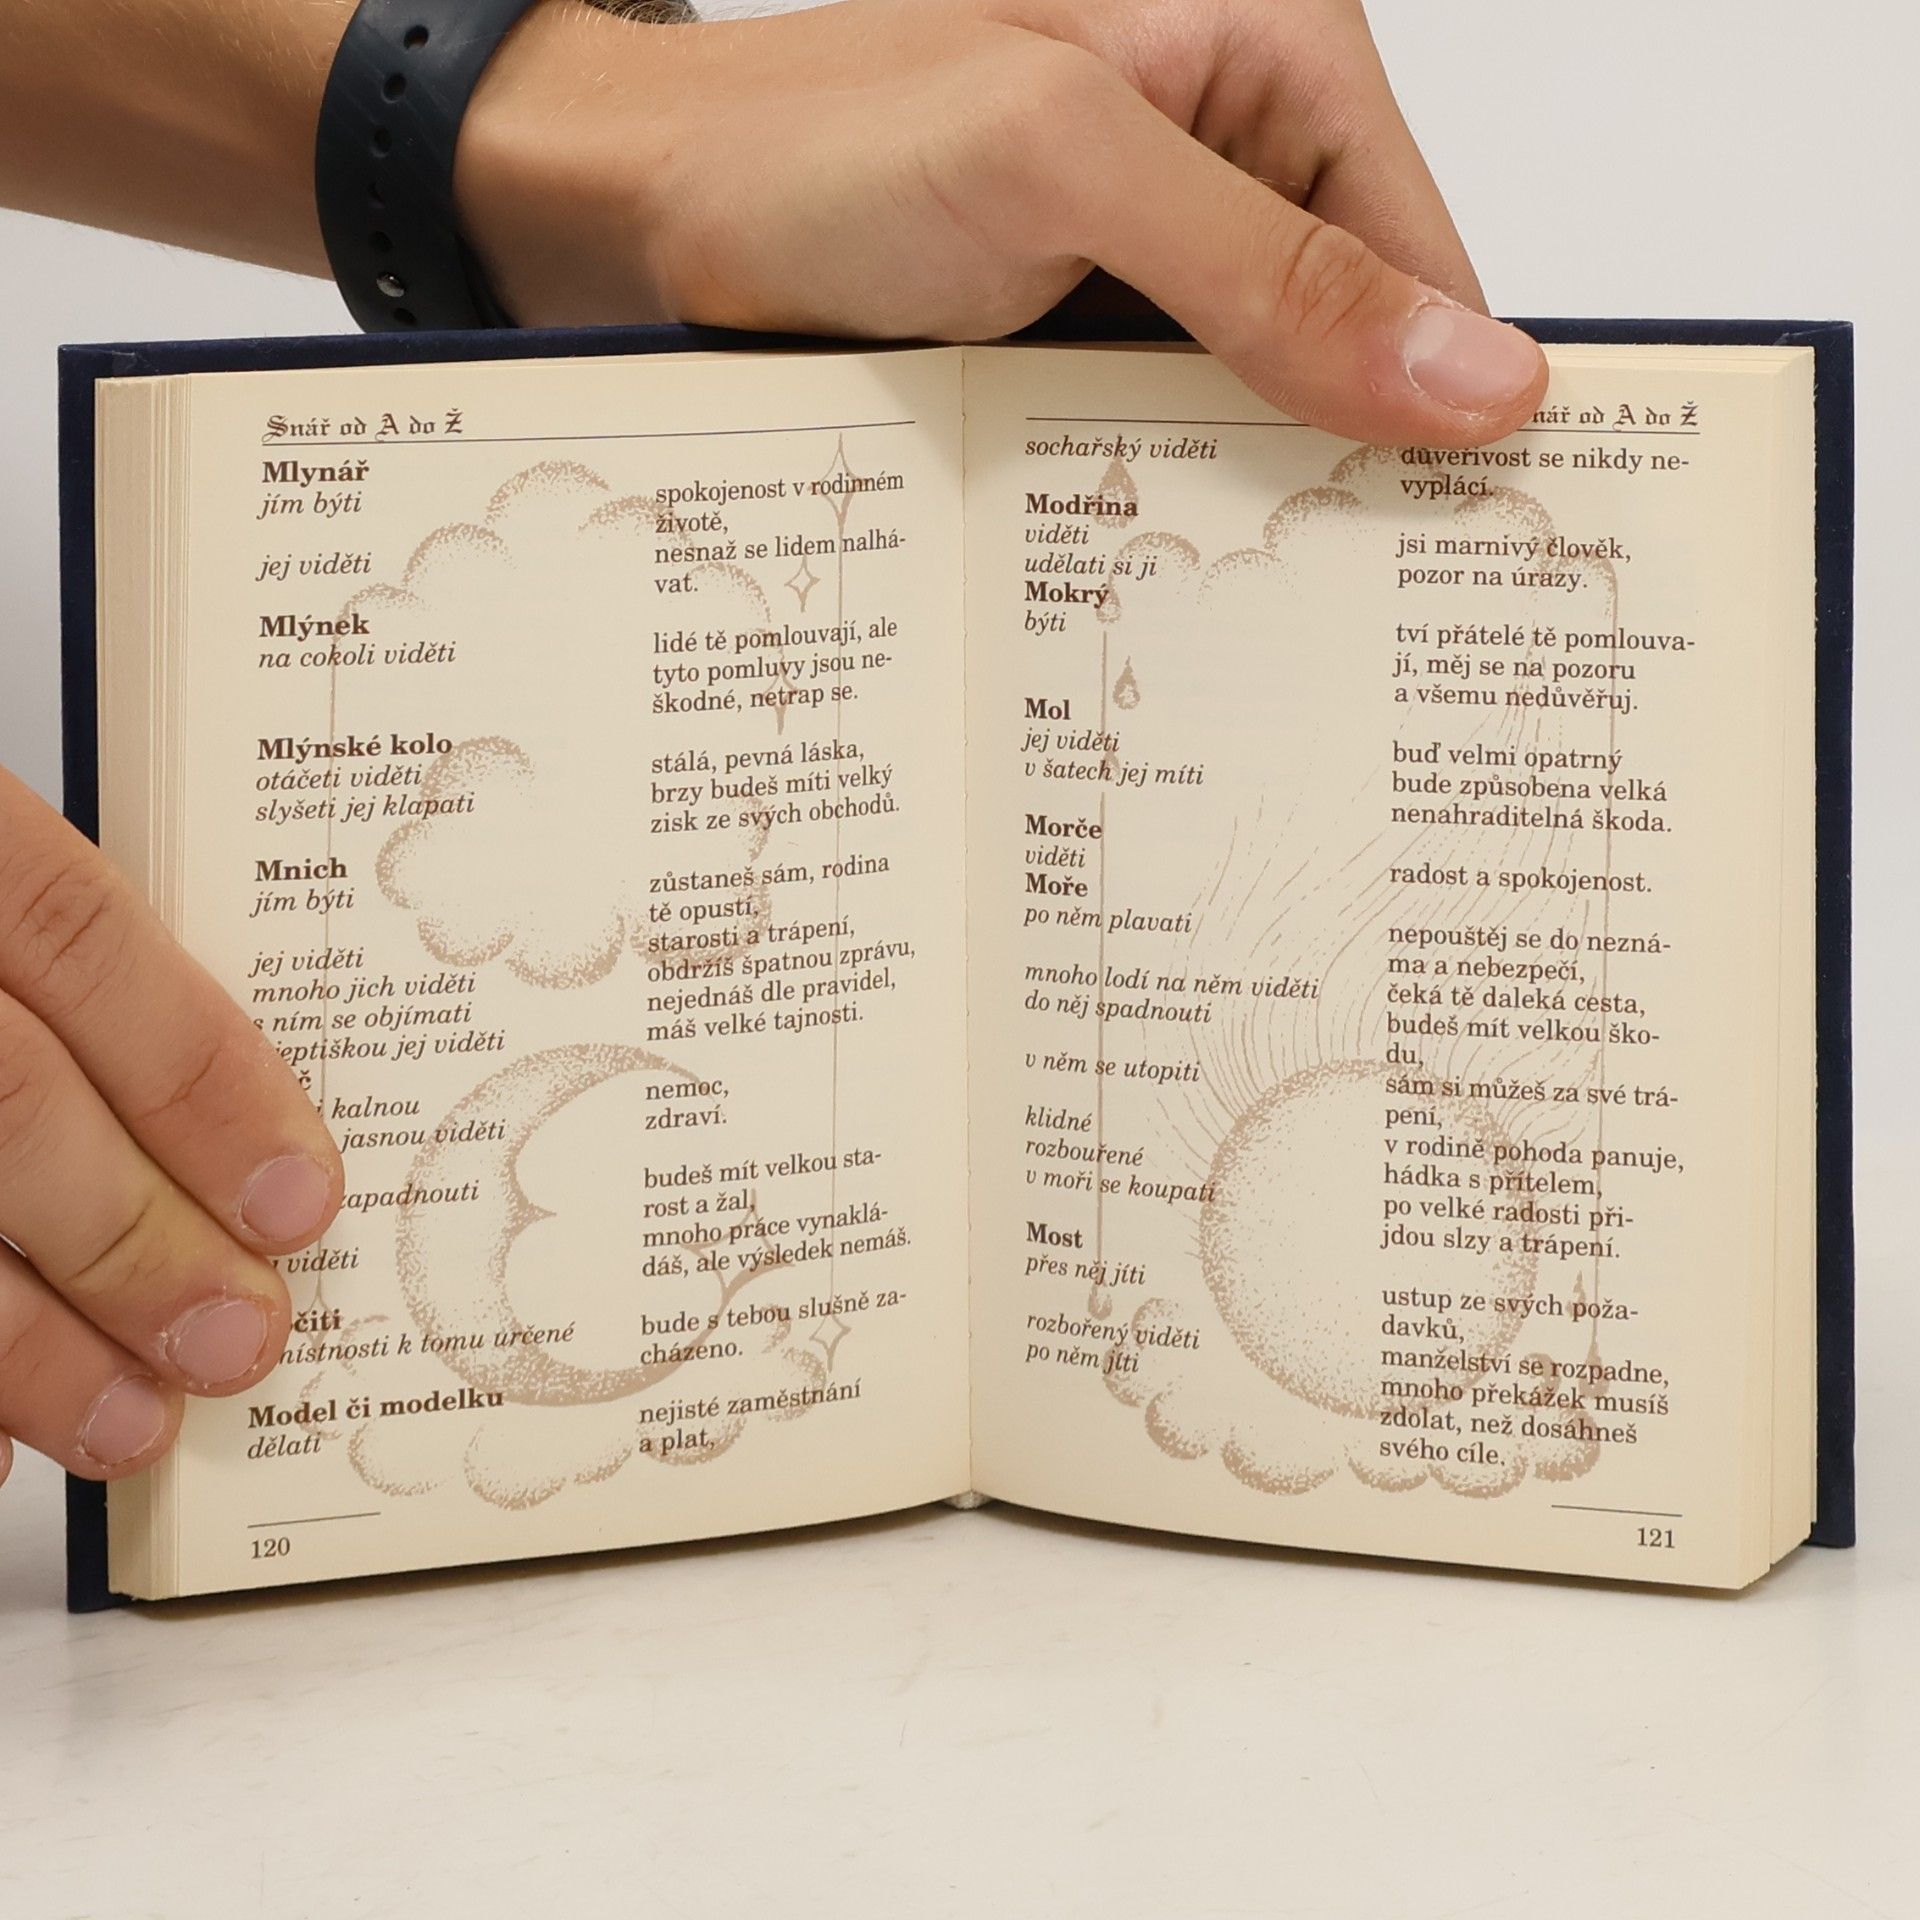 Snář od A do Ž
Mlynář
jím býti
spokojenost v rodinném
životě,
jej viděti
nesnaž se lidem nalhá-
vat.
Mlýnek
na cokoli viděti
lidé tě pomlouvají, ale
tyto pomluvy jsou ne-
škodné, netrap se.
Mlýnské kolo
otáčeti viděti
stálá, pevná láska,
slyšeti jej klapati
brzy budeš míti velký
zisk ze svých obchodů.
Mnich
jím býti
zůstaneš sám, rodina
tě opustí,
jej viděti
starosti a trápení,
mnoho jich viděti
obdržíš špatnou zprávu,
s ním se objímati
nejednáš dle pravidel,
jeptiškou jej viděti
máš velké tajnosti.
kalnou
nemoc,
jasnou viděti
zdraví.
zapadnouti
budeš mít velkou sta-
rost a žal,
viděti
mnoho práce vynaklá-
dáš, ale výsledek nemáš.
místnosti k tomu určené
bude s tebou slušně za-
cházeno.
Model či modelku
dělati
nejisté zaměstnání
a plat,
120
od A do Ž
sochařský viděti
důveřivost se nikdy ne-
vyplácí.
Modřina
viděti
jsi marnivý člověk,
udělati si ji
pozor na úrazy.
Mokrý
býti
tví přátelé tě pomlouva-
jí, měj se na pozoru
a všemu nedůvěřuj.
Mol
jej viděti
buď velmi opatrný
v šatech jej míti
bude způsobena velká
nenahraditelná škoda.
Morče
viděti
radost a spokojenost.
Moře
po něm plavati
nepouštěj se do nezná-
ma a nebezpečí,
mnoho lodí na něm viděti
čeká tě daleká cesta,
do něj spadnouti
budeš mít velkou ško-
du,
v něm se utopiti
sám si můžeš za své trá-
pení,
klidné
v rodině pohoda panuje,
rozbouřené
hádka s přítelem,
v moři se koupati
po velké radosti při-
jdou slzy a trápení.
Most
přes něj jíti
ustup ze svých poža-
davků,
rozbořený viděti
manželství se rozpadne,
po něm jíti
mnoho překážek musíš
zdolat, než dosáhneš
svého cíle.
121